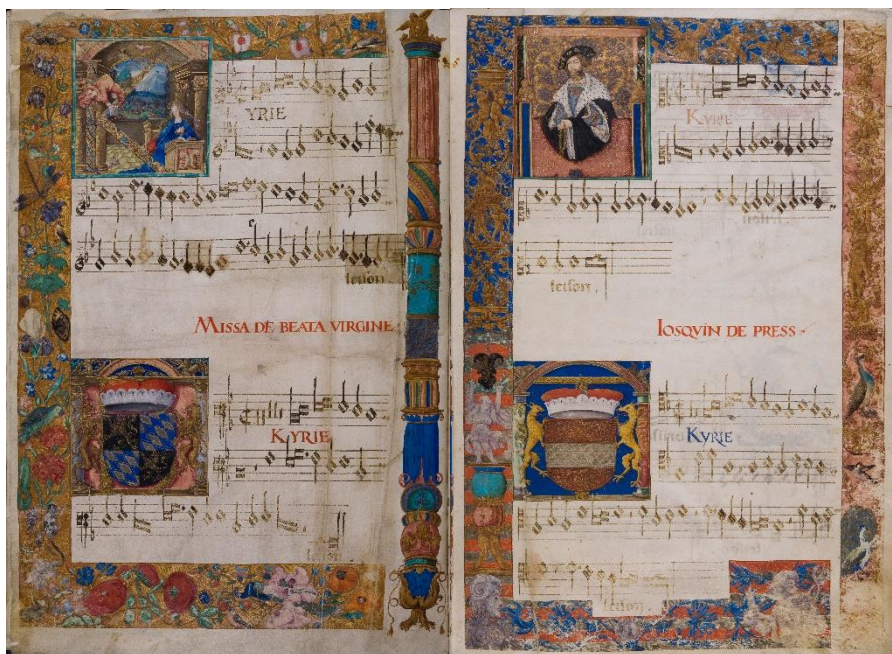 YRIE
leison.
MISSA DE BEATA VIRGINE.
KYRIE
KYRIE
leison.
IOSQVIN DE PRESS.
KYRIE
leison.